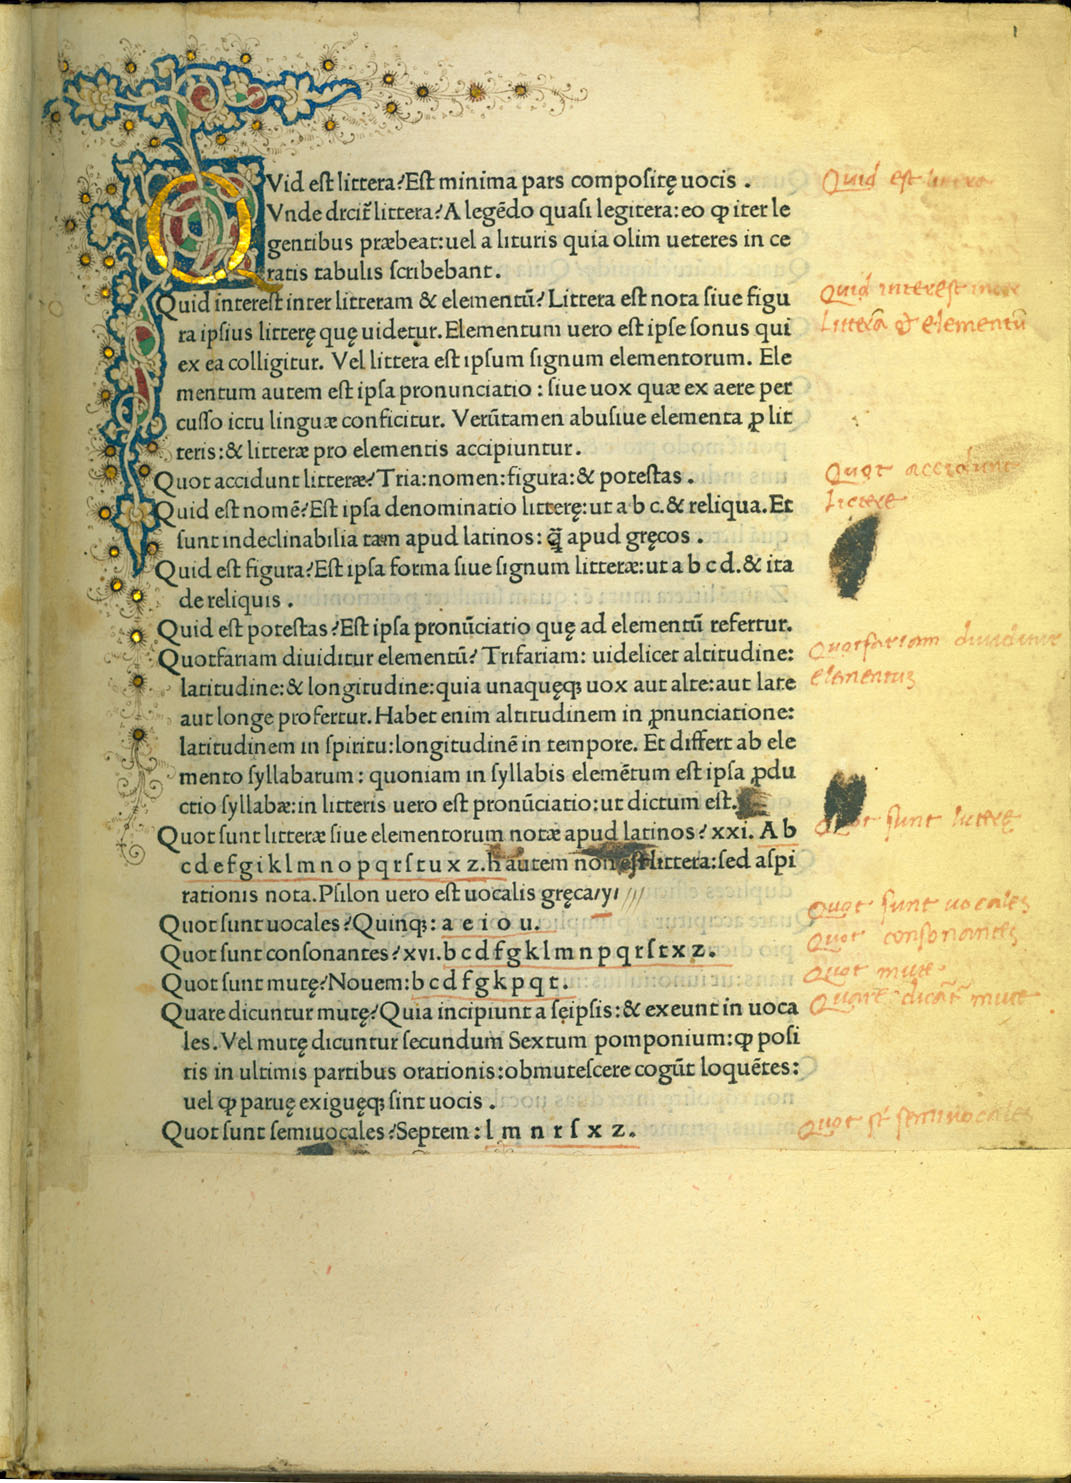 1
QVid eſt littera? Eſt minima pars compoſitę uocis .
Vnde dicit̃ littera? A legẽdo quaſi legitera: eo ꝙ iter le
gentibus præbeat: uel a lituris quia olim ueteres in ce
ratis tabulis ſcribebant .
Quid intereſt inter litteram & elementũ? Littera eſt nota ſiue figu
ra ipſius litterę quę uidetur. Elementum uero eſt ipſe ſonus qui
ex ea colligitur. Vel littera eſt ipſum ſignum elementorum. Ele
mentum autem eſt ipſa pronunciatio : ſiue uox quæ ex aere per
cuſſo ictu linguæ conficitur. Verũtamen abuſiue elementa ꝓ lit
teris: & litteræ pro elementis accipiuntur .
Quot accidunt litteræ? Tria: nomen: figura: & poteſtas .
Quid eſt nomẽ? Eſt ipſa denominatio litterę: ut a b c. & reliqua. Et
ſunt indeclinabilia tam apud latinos: q̃ apud gręcos .
Quid eſt figura? Eſt ipſa forma ſiue ſignum litteræ: ut a b c d. & ita
de reliquis .
Quid eſt poteſtas? Eſt ipſa pronũciatio quę ad elementũ refertur.
Quotfariam diuiditur elementũ? Trifariam: uidelicet altitudine:
latitudine: & longitudine: quia unaquęqꝫ uox aut alte: aut late
aut longe profertur. Habet enim altitudinem in ꝓnunciatione:
latitudinem in ſpiritu: longitudinẽ in tempore. Et differt ab ele
mento ſyllabarum : quoniam in ſyllabis elemẽtum eſt ipſa ꝓdu
ctio ſyllabæ: in litteris uero eſt pronũciatio: ut dictum eſt.
Quot ſunt litteræ ſiue elementorum notæ apud latinos? xxi. A b
c d e f g i k l m n o p q r ſ t u x z. h autem non eſt littera: ſed aſpi
rationis nota. Pſilon uero eſt uocalis gręca/y/
Quot ſunt uocales? Quinqꝫ: a e i o u.
Quot ſunt conſonantes? xvi. b c d f g k l m n p q r ſ t x z.
Quot ſunt mutę? Nouem: b c d f g k p q t.
Quare dicuntur mutę? Quia incipiunt a ſeipſis: & exeunt in uoca
les. Vel mutę dicuntur ſecundum Sextum pomponium: ꝙ poſi
tis in ultimis partibus orationis: obmuteſcere cogũt loquẽtes:
uel ꝙ paruę exiguęqꝫ ſint uocis .
Quot ſunt ſemiuocales? Septem: l m n r ſ x z.
Quid est littera
Quid interest inter
litterã & elementũ
Quot accidunt
littere
Quotfariam diuiditur
elementuꝫ
Quot sunt litterę
Quot sunt uocales
Quot consonantes
Quot mute
Quare dicũt̃ mute
Quot st̃ semiuocales